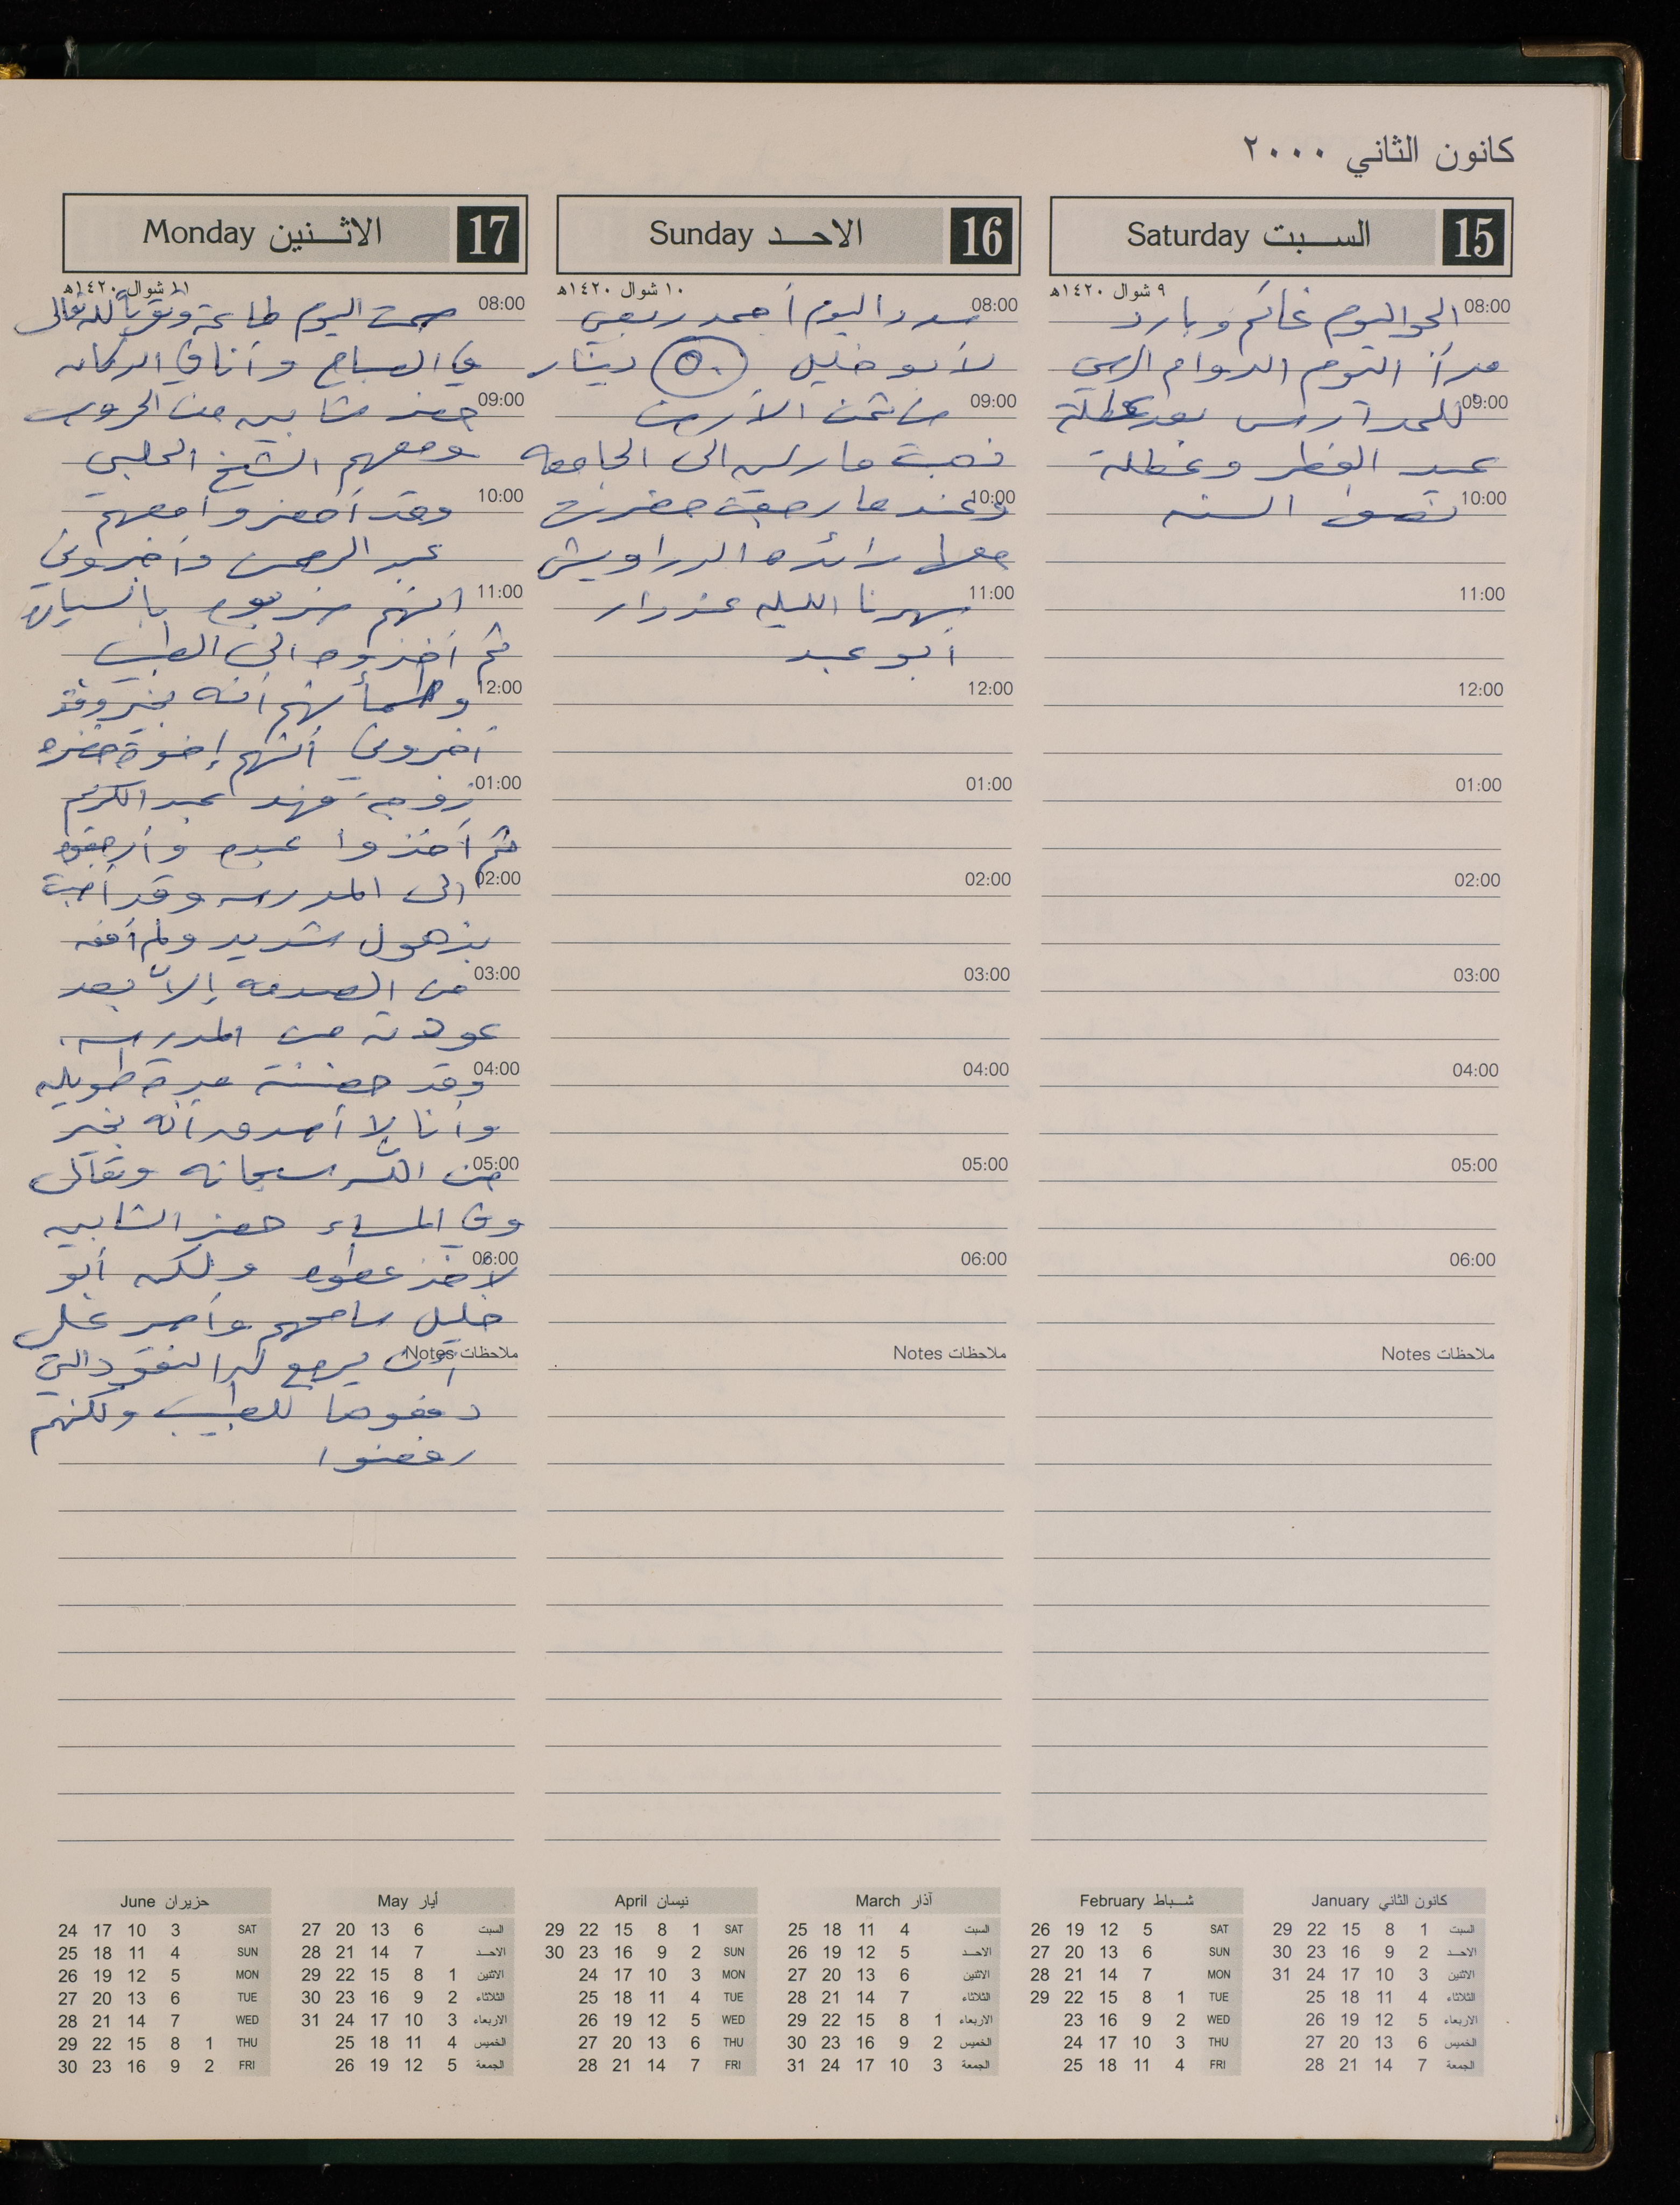 كانون الثاني ٢٠٠٠
15 السبت Saturday
٩ شوال ١٤٢٠هـ
08:00 الجو اليوم غائم وبارد
بدأ اليوم الدوام الرسمي
09:00 للمدارس بعد عطلة
عيد الفطر وعطلة
10:00 نصف السنه
11:00
12:00
01:00
02:00
03:00
04:00
05:00
06:00
ملاحظات Notes
16 الاحد Sunday
١٠ شوال ١٤٢٠هـ
08:00 سدد اليوم أحمد ربعي
لأبو خليل ٥٠ دينار
09:00 من ثمن الأرض
ذهبت مارلين الى الجامعه
10:00 وعندما رجعت حضرت
معها رائده الدراويش
11:00 سهرنا الليله عند دار
أبو عبد
12:00
01:00
02:00
03:00
04:00
05:00
06:00
ملاحظات Notes
17 الاثنين Monday
١١ شوال ١٤٢٠هـ
08:00 صمت اليوم طاعة وتقرباً لله تعالى
في الصباح وأنا في الدكان
09:00 حضر شابين من الخروب
ومعهم الشيخ الحلبي
10:00 وقد أحضروا معهم
عبد الرحمن وأخبروني
11:00 انهم ضربوه بالسيارة
ثم أخذوه الى الطبيب
12:00 وطمأنهم أنه بخير وقد
أخبروني أنهم إخوة حضره
01:00 زوجة فهد عبد الكريم
ثم أخذوا عبده وأرجعوه
02:00 الى المدرسه وقد أصبت
بذهول شديد ولم أفقه
03:00 من الصدمه إلا بعد
عودته من المدرسه
04:00 وقد حضنته مدة طويله
وأنا لا أصدق أنه بخير
05:00 من الله سبحانه وتعالى
وفي المساء حضر الشابين
06:00 لأخذ عطوه ولكن أبو
خليل سامحهم وأصر على
ملاحظات Notes أن يرجع لهم النقود التي
دفعوها للطبيب ولكنهم
رفضوا
كانون الثاني January
السبت 1 8 15 22 29
الاحد 2 9 16 23 30
الاثنين 3 10 17 24 31
الثلاثاء 4 11 18 25
الاربعاء 5 12 19 26
الخميس 6 13 20 27
الجمعة 7 14 21 28
شباط February
SAT 5 12 19 26
SUN 6 13 20 27
MON 7 14 21 28
TUE 1 8 15 22 29
WED 2 9 16 23
THU 3 10 17 24
FRI 4 11 18 25
آذار March
السبت 4 11 18 25
الاحد 5 12 19 26
الاثنين 6 13 20 27
الثلاثاء 7 14 21 28
الاربعاء 1 8 15 22 29
الخميس 2 9 16 23 30
الجمعة 3 10 17 24 31
نيسان April
SAT 1 8 15 22 29
SUN 2 9 16 23 30
MON 3 10 17 24
TUE 4 11 18 25
WED 5 12 19 26
THU 6 13 20 27
FRI 7 14 21 28
أيار May
السبت 6 13 20 27
الاحد 7 14 21 28
الاثنين 1 8 15 22 29
الثلاثاء 2 9 16 23 30
الاربعاء 3 10 17 24 31
الخميس 4 11 18 25
الجمعة 5 12 19 26
حزيران June
SAT 3 10 17 24
SUN 4 11 18 25
MON 5 12 19 26
TUE 6 13 20 27
WED 7 14 21 28
THU 1 8 15 22 29
FRI 2 9 16 23 30